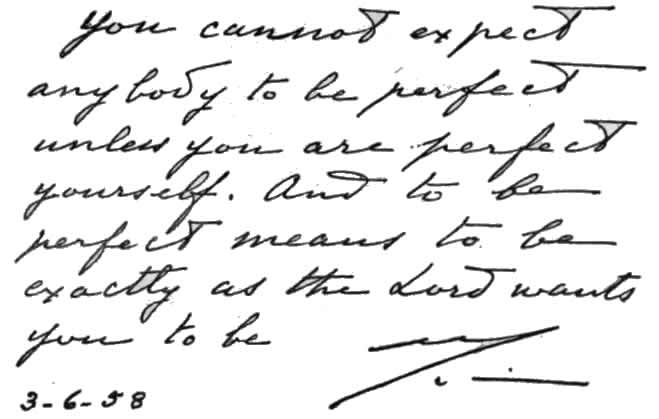 You cannot expect
anybody to be perfect
unless you are perfect
yourself. And to be
perfect means to be
exactly as the Lord wants
you to be
3-6-58